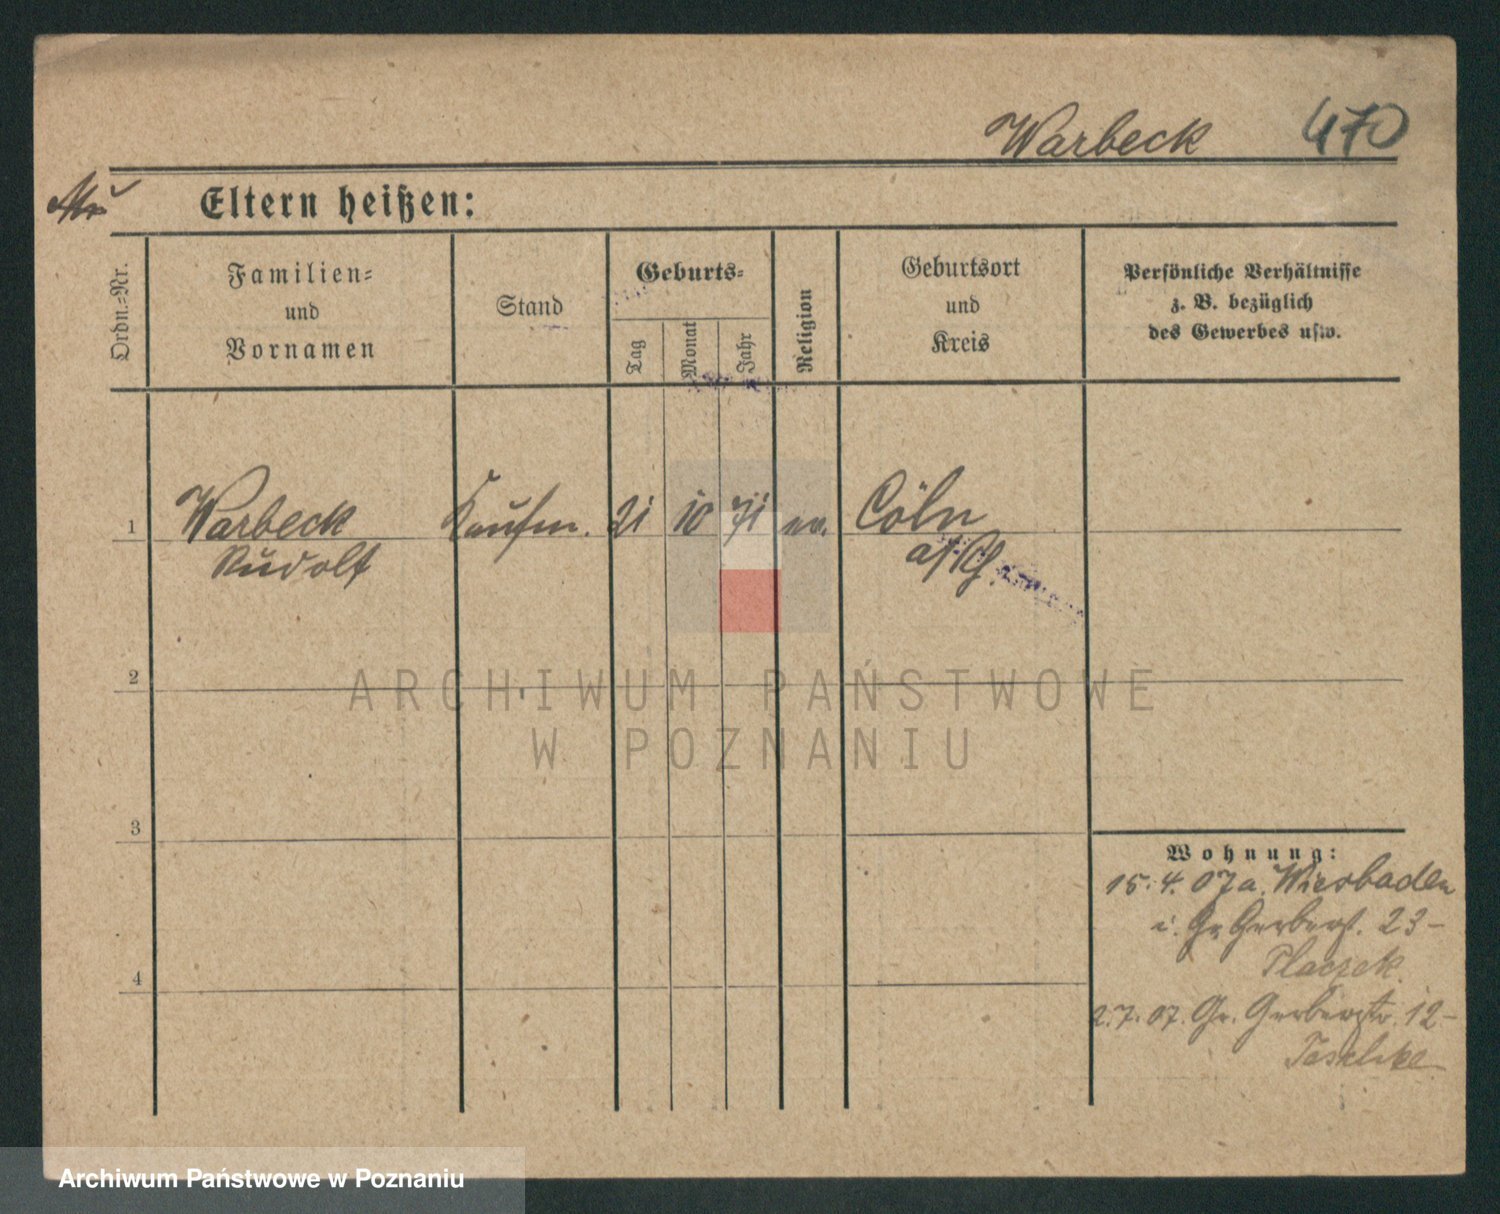 Warbeck 470
Eltern heißen:
Ordn.=Nr.
Familien=
und
Vornamen
Stand
Geburts=
Tag
Monat
Jahr
Religion
Geburtsort
und
Kreis
Persönliche Verhältnisse
z. B. bezüglich
des Gewerbes usw.
1 Warbeck Kaufm. 21 10 71 ev. Cöln
Rudolf a/Rh.
2
3
4
Wohnung:
15.4.07 a. Wiesbaden
i. Gr. Gerberst. 23-
Placzek
2.7.07. Gr. Gerberstr. 12-
Taschke
ARCHIWUM PAŃSTWOWE
W POZNANIU
Archiwum Państwowe w Poznaniu